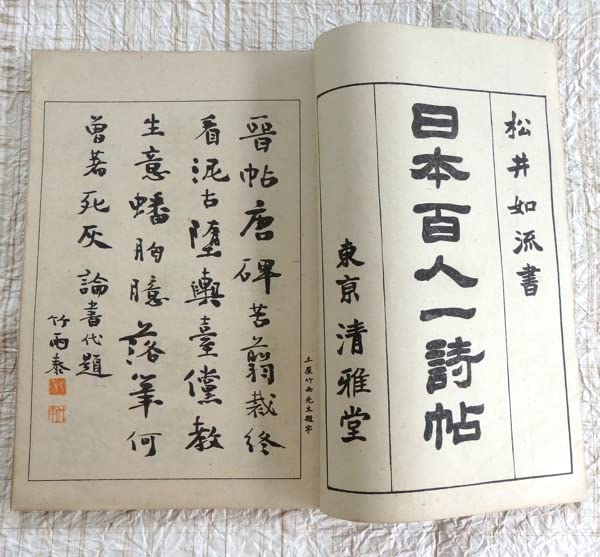 松井如流書
日本百人一詩帖
東亰 清雅堂
土屋竹雨先生題字
晉帖唐碑苦翦裁終
看泥古墮輿臺儻教
生意蟠胸臆落筆何
曾著死灰 論書代題
竹雨泰